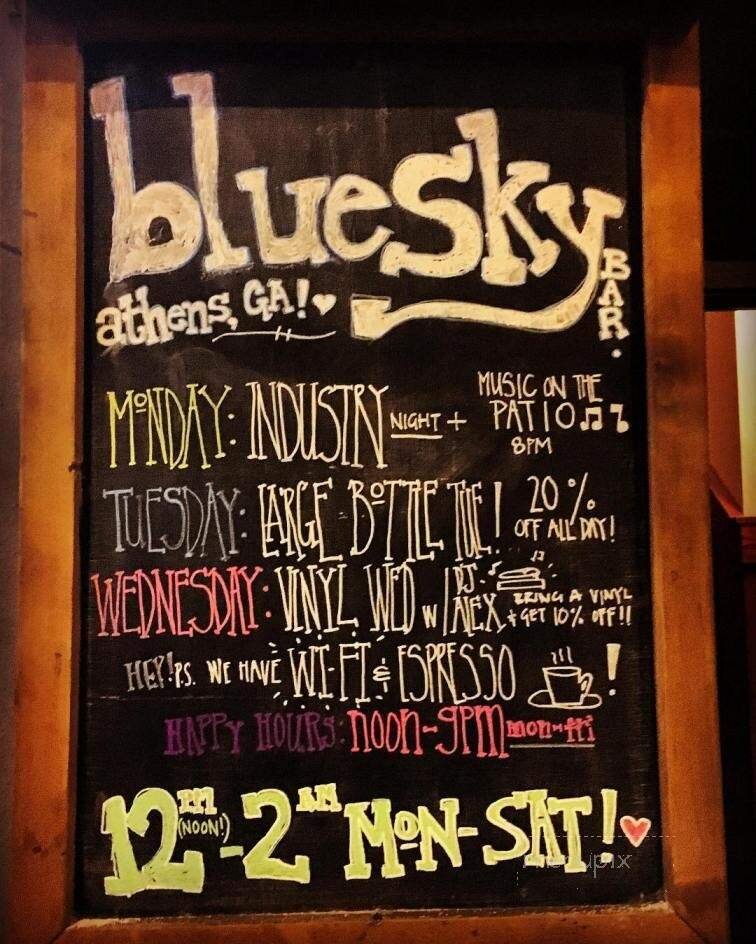 bluesky
BAR.
athens, GA!
MONDAY: INDUSTRY NIGHT + MUSIC ON THE PATIO 8PM
TUESDAY: LARGE BOTTLE TUE! 20% OFF ALL DAY!
WEDNESDAY: VINYL WED W/ DJ ALEX BRING A VINYL + GET 10% OFF!!
HEY! P.S. WE HAVE WI-FI & ESPRESSO!
HAPPY HOURS: noon-9pm mon-fri
12PM (NOON!) - 2AM MON-SAT!
menupix